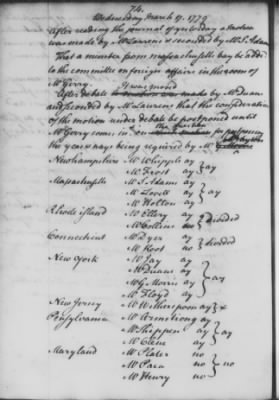 74.
Wednesday March 17. 1779
After reading the journal of yesterday a motion
was made by Mr Laurens & seconded by Mr S. Adams
That a member from massachusetts bay be added
to the committee on foreign affairs in the room of
Mr Gerry.
it was moved
After debate by Mr Duane
and seconded by Mr Laurens that the consideration
of the motion under debate be postponed until
Mr Gerry comes in. on the question for postponing
the yeas & nays being required by
Newhampshire Mr Whipple ay } ay
Mr Frost ay
Massachusetts Mr S. Adams ay } ay
Mr Lovell ay
Mr Holten ay
Rhode island Mr Ellery ay } divided
Mr Collins no
Connecticut Mr Dyer ay } divided
Mr Root no
New York Mr Jay ay } ay
Mr Duane ay
Mr G Morris ay
Mr Floyd ay
New Jersey Mr Witherspoon ay } x
Pensylvania Mr Armstrong ay } ay
Mr Shippen ay
Mr Clene ay
Maryland Mr Plater no } no
Mr Paca no
Mr Henry no